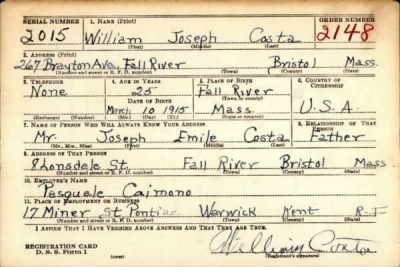 SERIAL NUMBER 1. NAME (Print) ORDER NUMBER
2015 William Joseph Costa 2148
(First) (Middle) (Last)
2. ADDRESS (Print)
267 Brayton Ave, Fall River Bristol Mass.
(Number and street or R. F. D. number) (Town) (County) (State)
3. TELEPHONE 4. AGE IN YEARS 5. PLACE OF BIRTH 6. COUNTRY OF CITIZENSHIP
None 25 Fall River
DATE OF BIRTH (Town or county)
10 1915 Mass. U.S.A.
(Exchange) (Number) (Mo.) (Day) (Yr.) (State or country)
7. NAME OF PERSON WHO WILL ALWAYS KNOW YOUR ADDRESS 8. RELATIONSHIP OF THAT PERSON
Mr. Joseph Emile Costa Father
(Mr., Mrs., Miss) (First) (Middle) (Last)
9. ADDRESS OF THAT PERSON
8 Lonsdale St. Fall River Bristol Mass
(Number and street or R. F. D. number) (Town) (County) (State)
10. EMPLOYER'S NAME
Pasquale
11. PLACE OF EMPLOYMENT OR BUSINESS
17 Miner St Pontiac Warwick Kent R-I
(Number and street or R. F. D. number) (Town) (County) (State)
I AFFIRM THAT I HAVE VERIFIED ABOVE ANSWERS AND THAT THEY ARE TRUE.
REGISTRATION CARD
D. S. S. Form 1 (over) William Costa
(Signature)